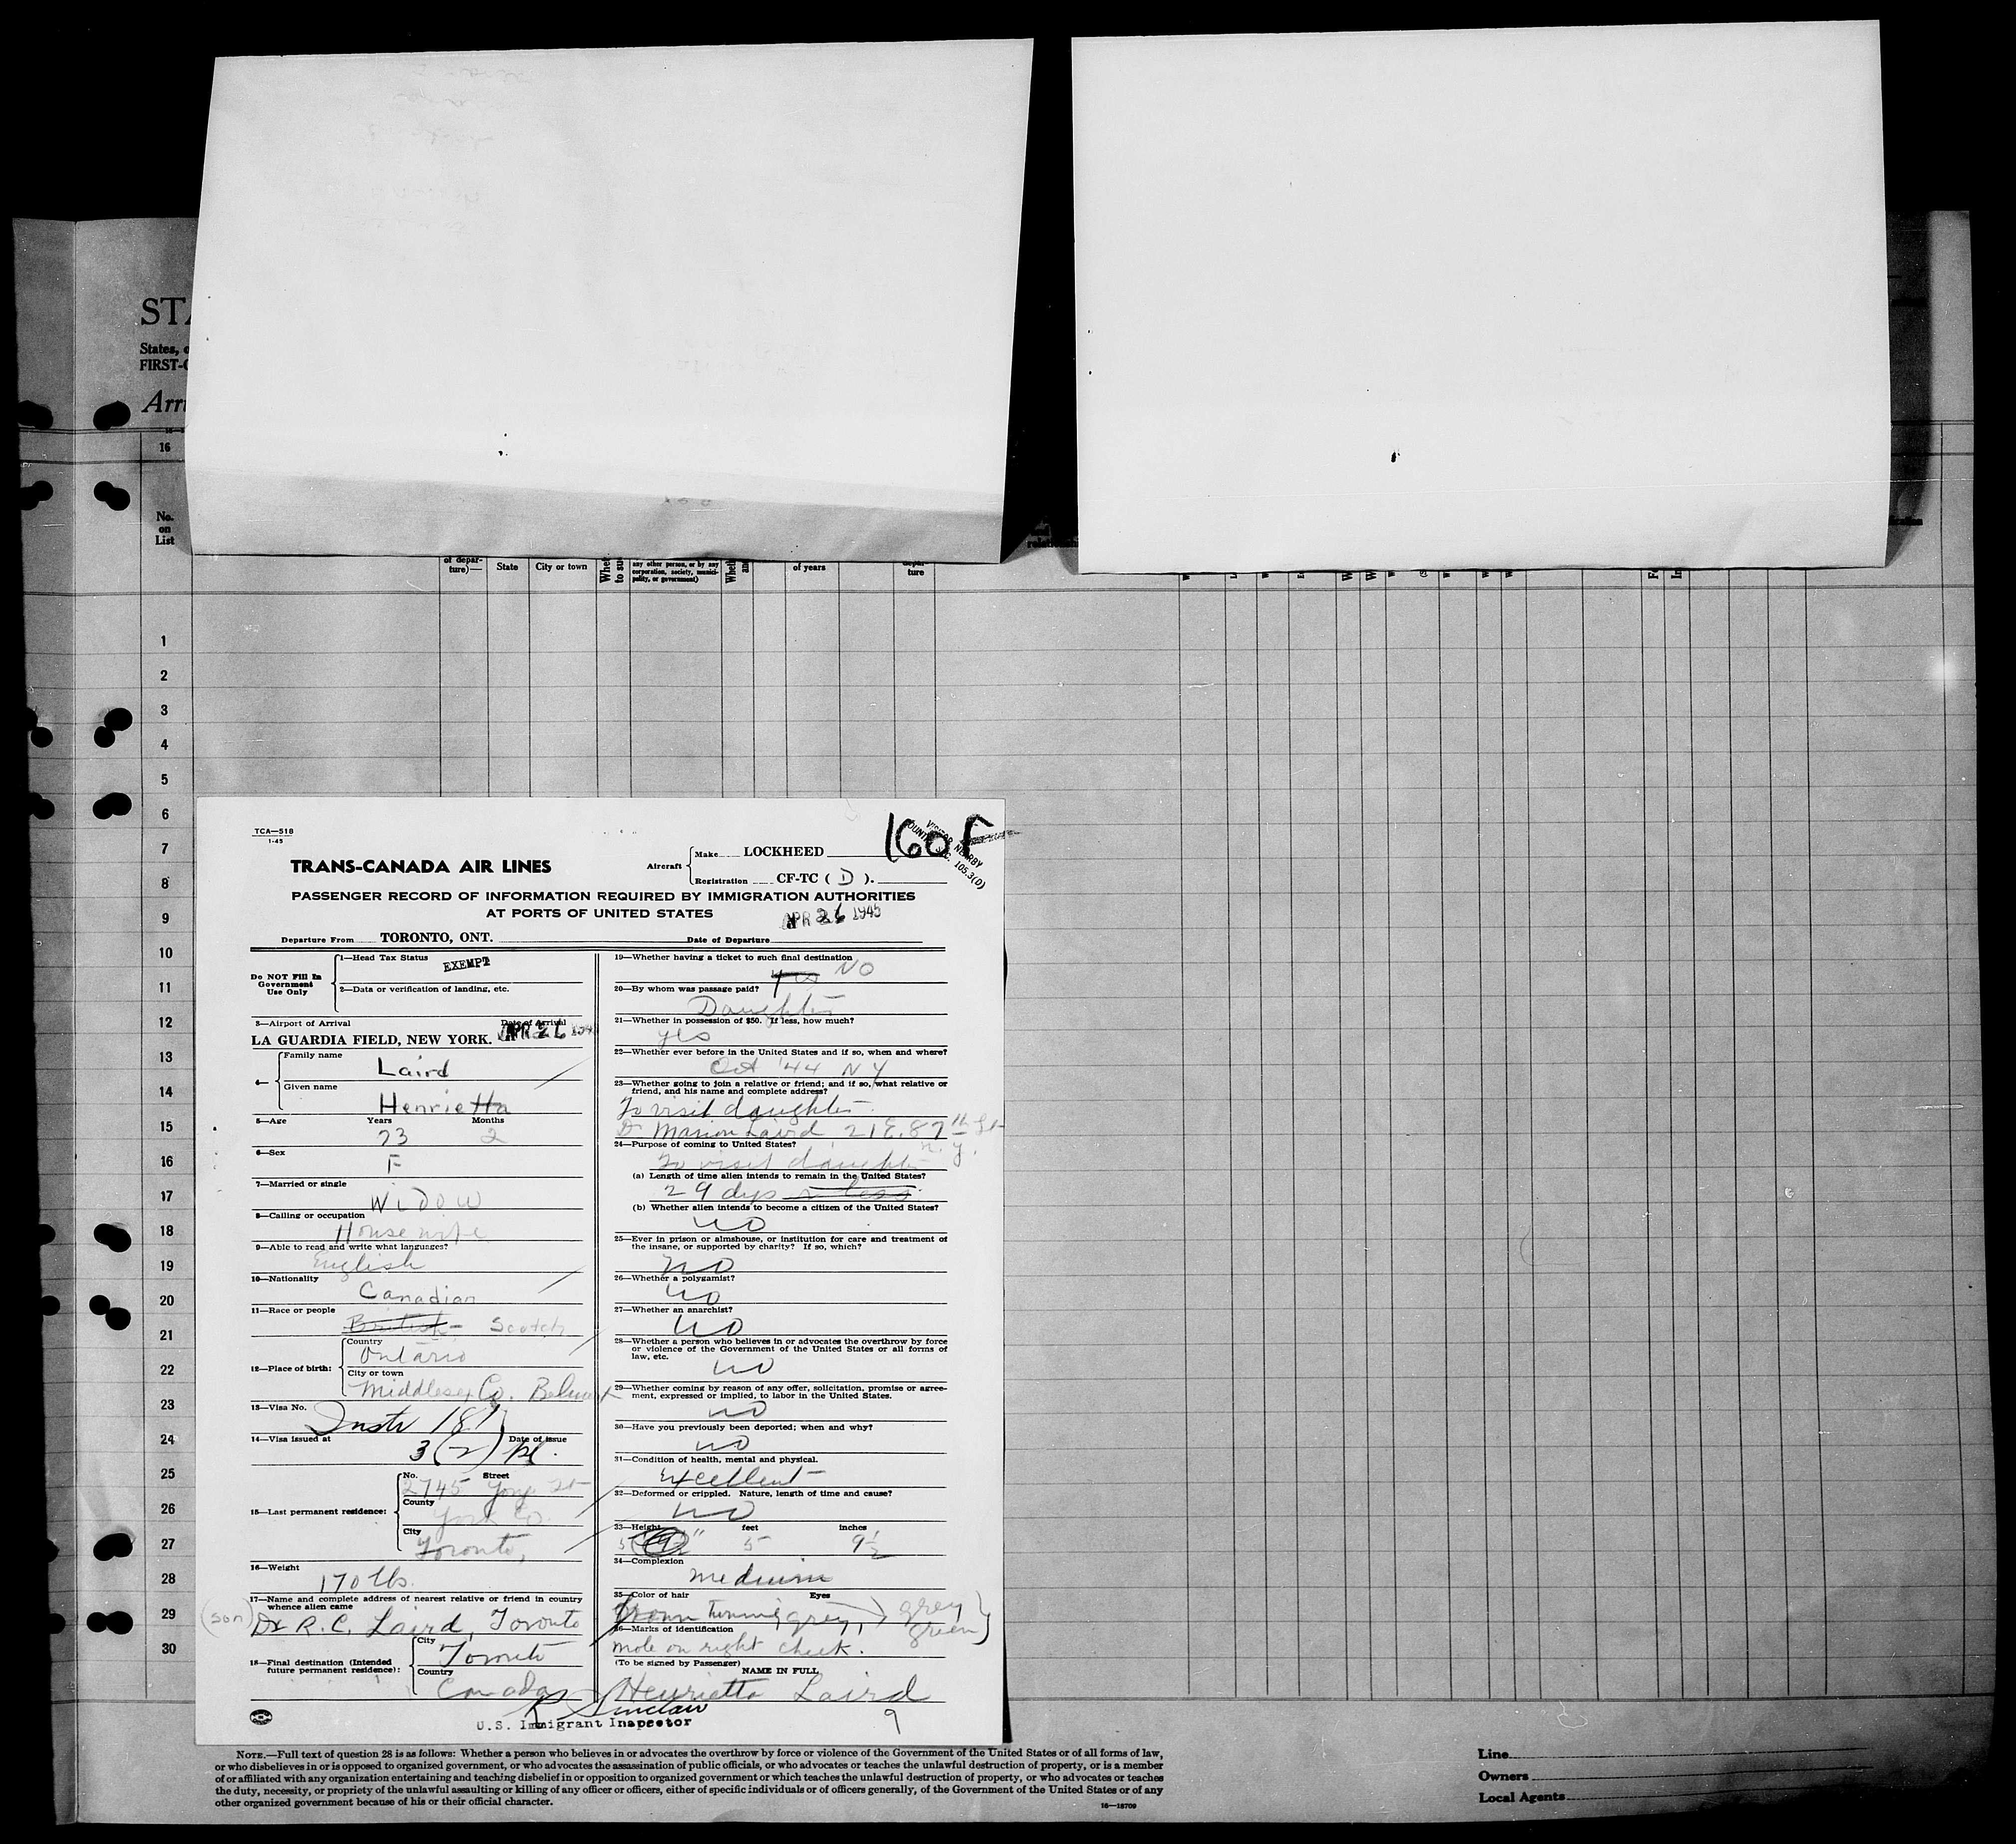 STA
States, o
FIRST-C
Arri
16
No.
on
List
of depar-
ture)—
State
City or town
any other person, or by any
corporation, society, munici-
pality, or government)
of years
depar-
ture
1
2
3
4
5
6
7
8
9
10
11
12
13
14
15
16
17
18
19
20
21
22
23
24
25
26
27
28
29
30
TCA—518
1-45
160F
VISITOR NEARBY
COUNTRY 105.3(D)
TRANS-CANADA AIR LINES
Aircraft
Make LOCKHEED
Registration CF-TC ( D ).
PASSENGER RECORD OF INFORMATION REQUIRED BY IMMIGRATION AUTHORITIES
AT PORTS OF UNITED STATES
APR 26 1945
Departure From TORONTO, ONT. Date of Departure
Do NOT Fill In
Government
Use Only
1—Head Tax Status
EXEMPT
2—Data or verification of landing, etc.
3—Airport of Arrival Date of Arrival
LA GUARDIA FIELD, NEW YORK. APR 26 194
4— Family name
Laird
Given name
Henrietta
5—Age Years Months
73 2
6—Sex
F
7—Married or single
Widow
8—Calling or occupation
Housewife
9—Able to read and write what languages?
English
10—Nationality
Canadian
11—Race or people
British Scotch
12—Place of birth:
Country
Ontario
City or town
Middlesex Co. Belmont
13—Visa No.
Instr 181
14—Visa issued at Date of issue
3(-2)
15—Last permanent residence:
No. Street
2745 Yonge St
County
York Co.
City
Toronto,
16—Weight
170 lbs.
17—Name and complete address of nearest relative or friend in country
whence alien came
(son) Dr R. C. Laird, Toronto
18—Final destination (Intended
future permanent residence):
City
Toronto
Country
Canada
19—Whether having a ticket to such final destination
yes NO
20—By whom was passage paid?
Daughter
21—Whether in possession of $50. If less, how much?
yes
22—Whether ever before in the United States and if so, when and where?
Oct '44 NY
23—Whether going to join a relative or friend; and if so, what relative or
friend, and his name and complete address?
To visit daughter
Dr Marion Laird, 21 E. 87th St
N.Y.
24—Purpose of coming to United States?
To visit daughter
(a) Length of time alien intends to remain in the United States?
29 dys or less
(b) Whether alien intends to become a citizen of the United States?
no
25—Ever in prison or almshouse, or institution for care and treatment of
the insane, or supported by charity? If so, which?
no
26—Whether a polygamist?
no
27—Whether an anarchist?
no
28—Whether a person who believes in or advocates the overthrow by force
or violence of the Government of the United States or all forms of
law, etc.
no
29—Whether coming by reason of any offer, solicitation, promise or agree-
ment, expressed or implied, to labor in the United States.
no
30—Have you previously been deported; when and why?
no
31—Condition of health, mental and physical.
Excellent
32—Deformed or crippled. Nature, length of time and cause?
no
33—Height feet inches
5 5 9½
34—Complexion
medium
35—Color of hair Eyes
Brown turning grey, grey
green
36—Marks of identification
mole on right cheek.
(To be signed by Passenger)
NAME IN FULL
Henrietta Laird
R Sinclair
U.S. Immigrant Inspector
9
NOTE.—Full text of question 28 is as follows: Whether a person who believes in or advocates the overthrow by force or violence of the Government of the United States or of all forms of law,
or who disbelieves in or is opposed to organized government, or who advocates the assassination of public officials, or who advocates or teaches the unlawful destruction of property, or is a member
of or affiliated with any organization entertaining and teaching disbelief in or opposition to organized government or which teaches the unlawful destruction of property, or who advocates or teaches
the duty, necessity, or propriety of the unlawful assaulting or killing of any officer or officers, either of specific individuals or of officers generally, of the Government of the United States or of any
other organized government because of his or their official character.
16—18709
Line
Owners
Local Agents